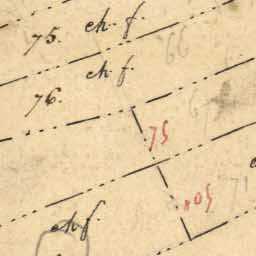 75. ch. f.
ch. f.
76.
66
75
ch. f.
50
71